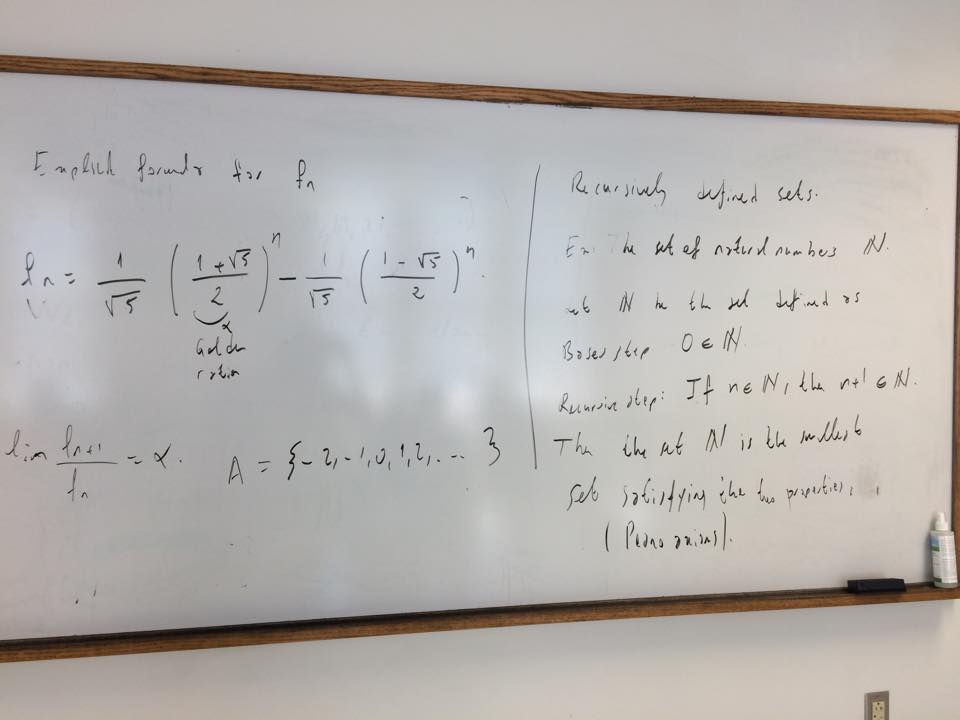 Explicit formula for fn
fn = 1/√5 ((1+√5)/2)^n − 1/√5 ((1−√5)/2)^n.
α
Golden
ratio
lim fn+1/fn = α. A = {-2, -1, 0, 1, 2, ... }
Recursively defined sets.
Ex: The set of natural numbers ℕ.
Let ℕ be the set defined as
Bases step 0 ∈ ℕ.
Recursive step: If n ∈ ℕ, the n+1 ∈ ℕ.
The the set ℕ is the smallest
set satisfying the two properties.
(Peano axioms).